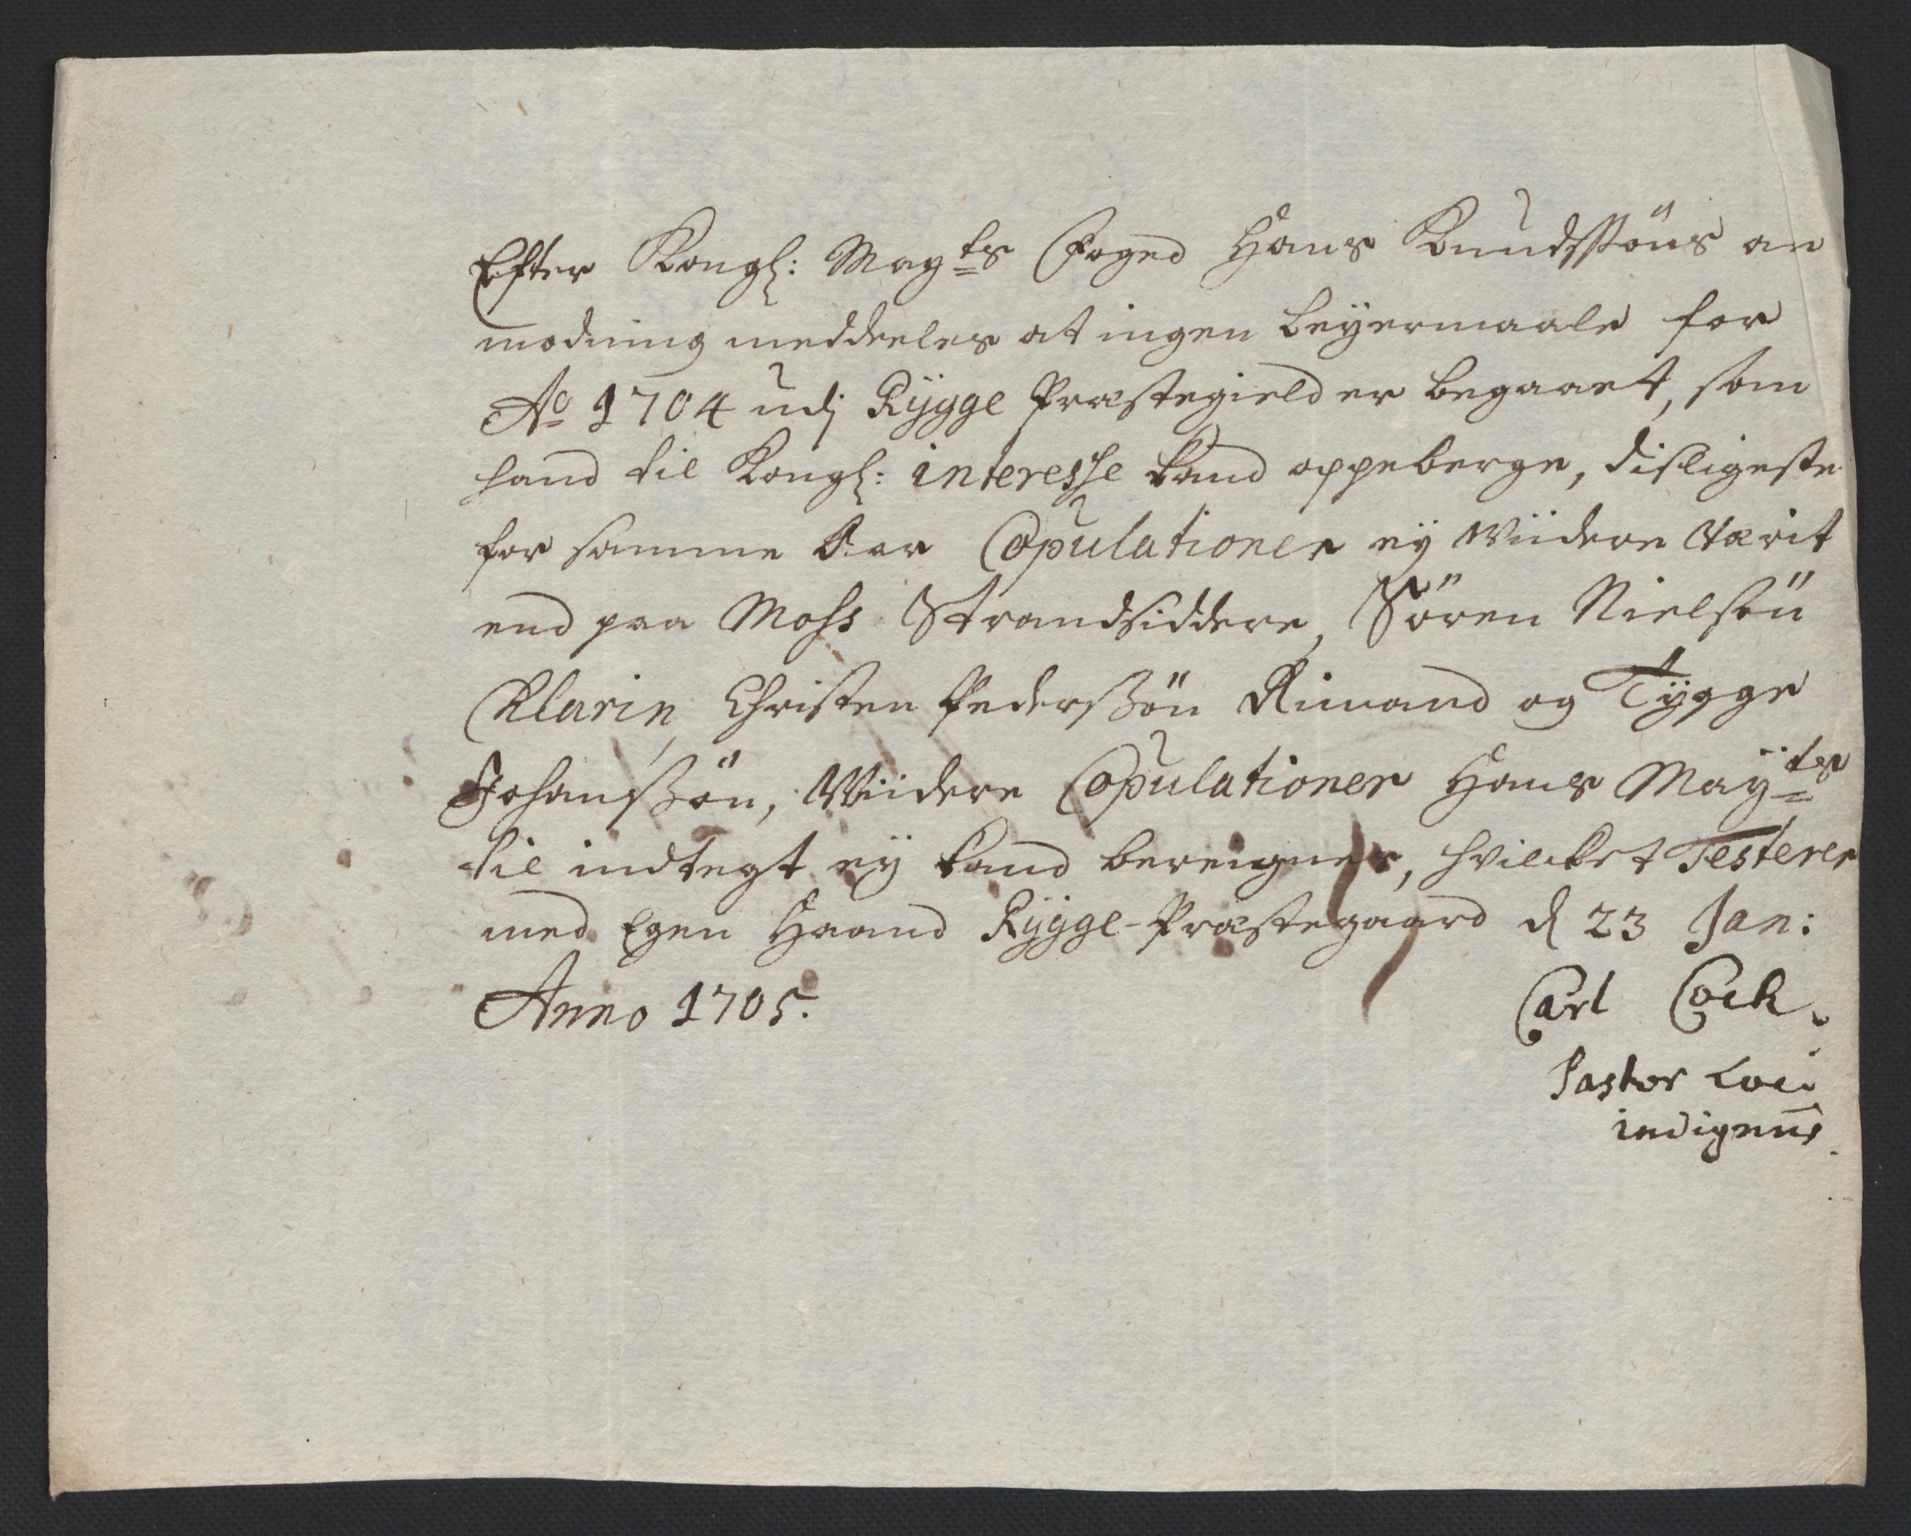 Efter Kongl: Mayts Foged Hans Knudssøns an
modning meddeeles at ingen Leyermaale for
Ao 1704 udj Rygge Præstegield er begaaet, som
hand til Kongl: interesse kand oppeberge, disligeste
for samme Aar Copulationer ey Wiidere Værit
end paa Moss Strandsiddere, Sören Nielsøn
Klarin, Christen Pederssøn Rimand og Tygge
Johanssøn, Wiidere Copulationer Hans Mayts
til indtegt ey kand bereignes, hvilcket Testerer
med Egen Haand Rygge-Præstegaard d 23 Jan:
Anno 1705.
Carl Cock.
Pastor Loci
indignus